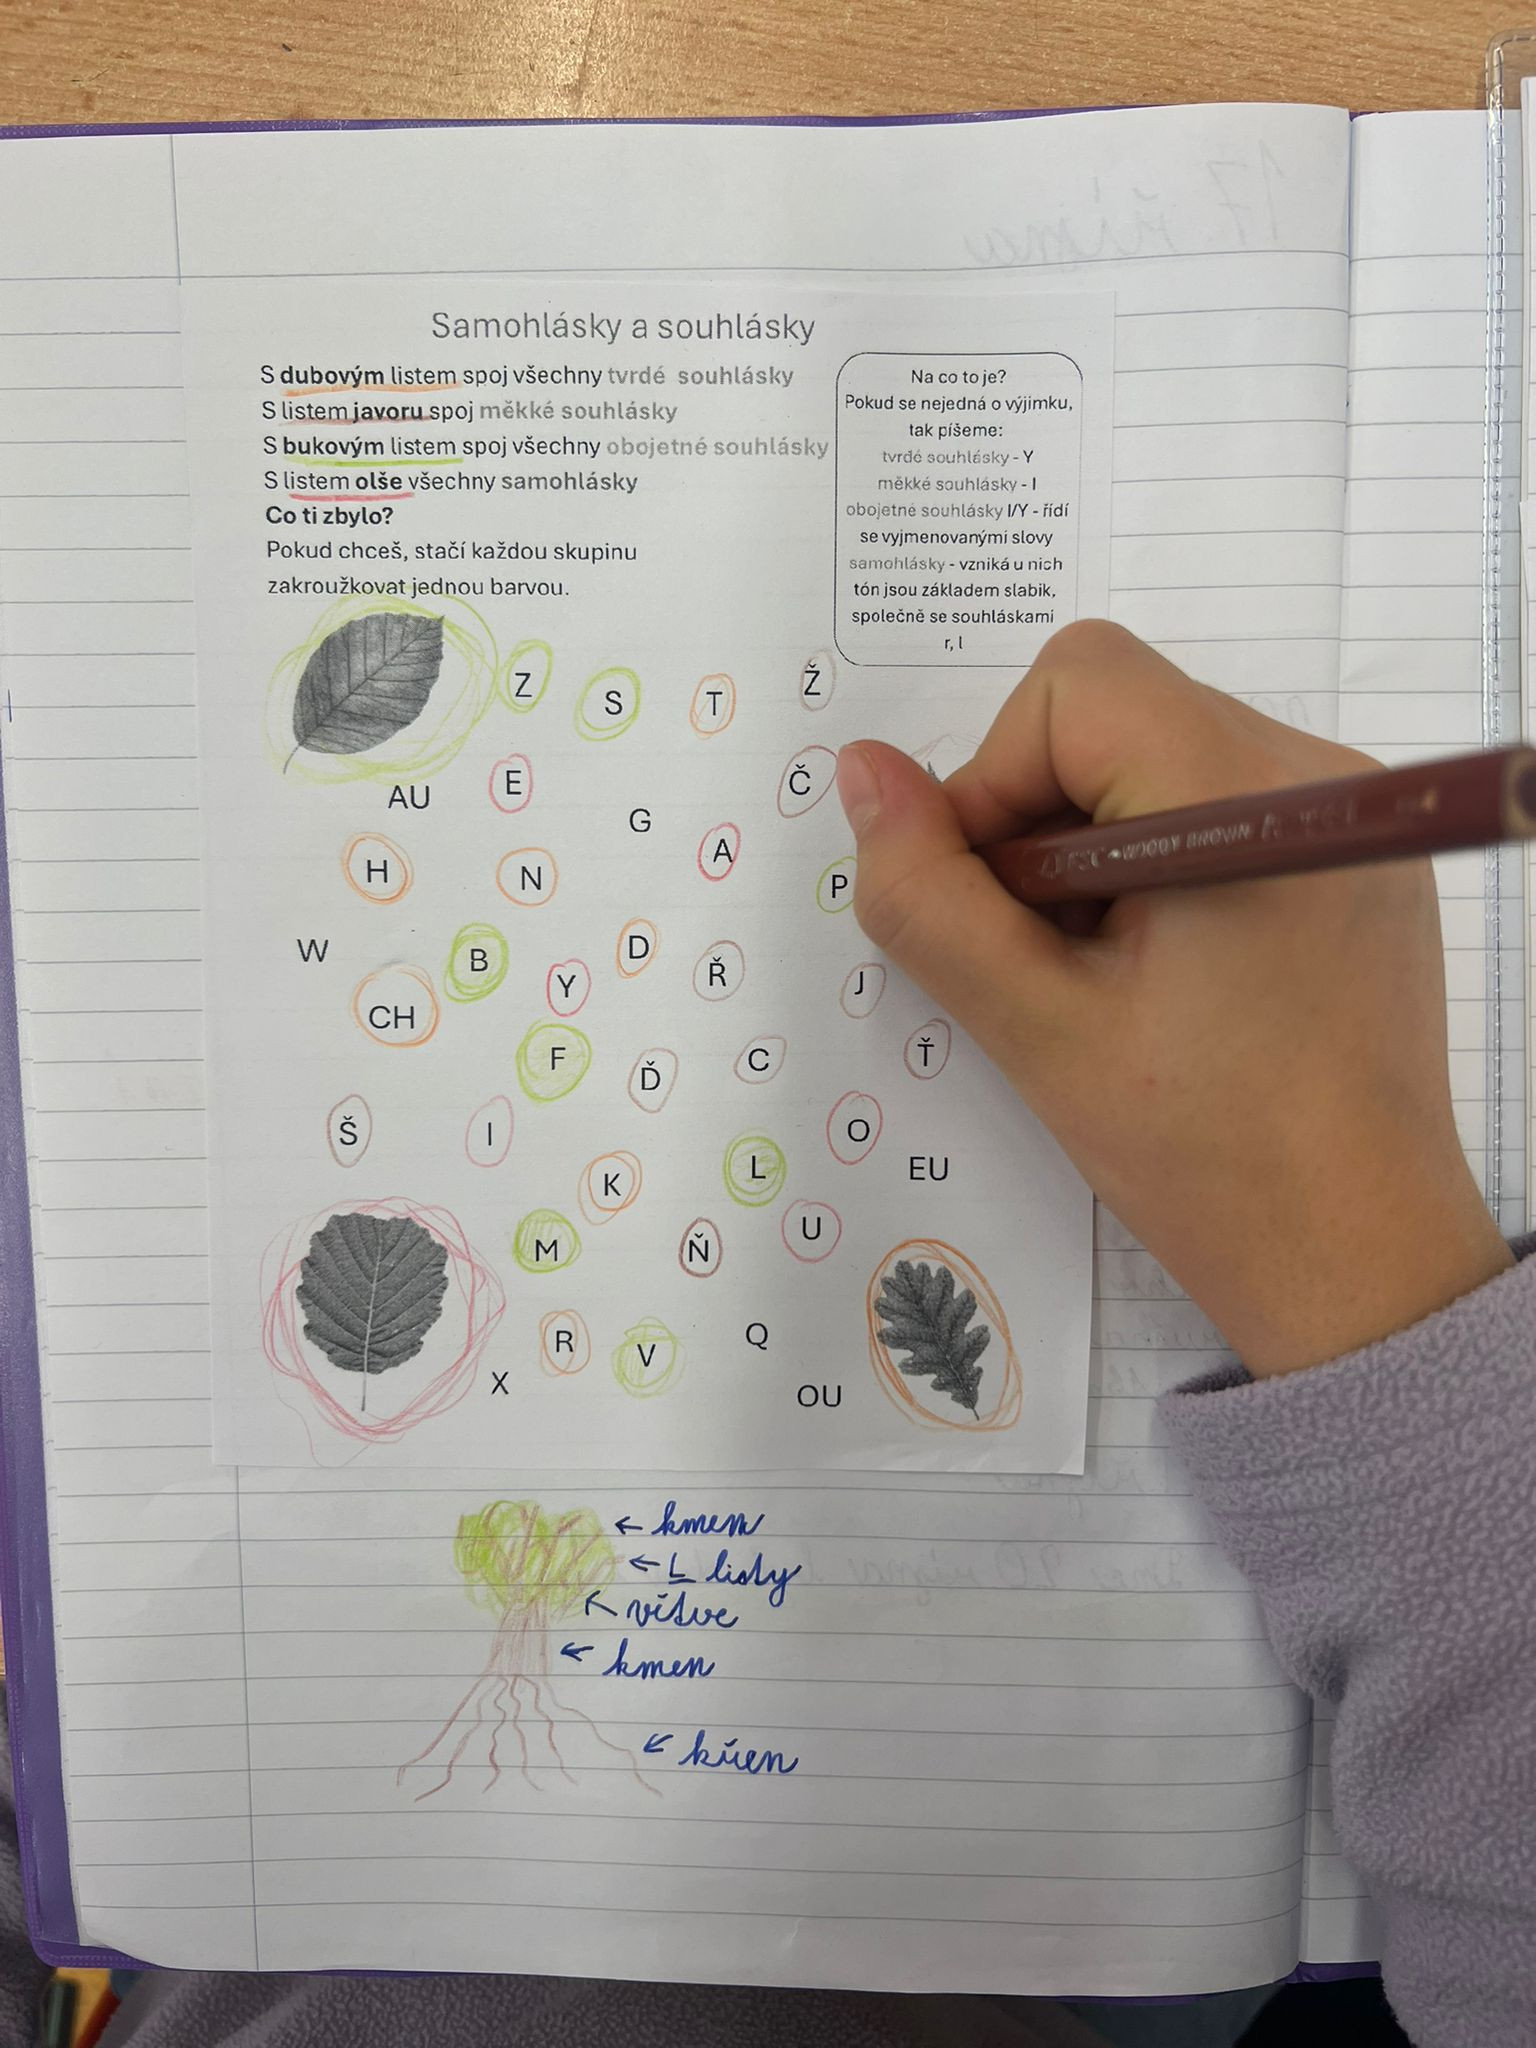 17. října
Samohlásky a souhlásky
S dubovým listem spoj všechny tvrdé souhlásky
S listem javoru spoj měkké souhlásky
S bukovým listem spoj všechny obojetné souhlásky
S listem olše všechny samohlásky
Co ti zbylo?
Pokud chceš, stačí každou skupinu
zakroužkovat jednou barvou.
Na co to je?
Pokud se nejedná o výjimku,
tak píšeme:
tvrdé souhlásky - Y
měkké souhlásky - I
obojetné souhlásky I/Y - řídí
se vyjmenovanými slovy
samohlásky - vzniká u nich
tón jsou základem slabik,
společně se souhláskami
r, l
Z S T Ž
AU E G Č
H N A P
W B D Ř
CH Y J
F Ď C Ť
Š I O
K L EU
M Ň U
R V Q
X OU
← kmen
← L listy
← větve
← kmen
← křen
WOODY BROWN